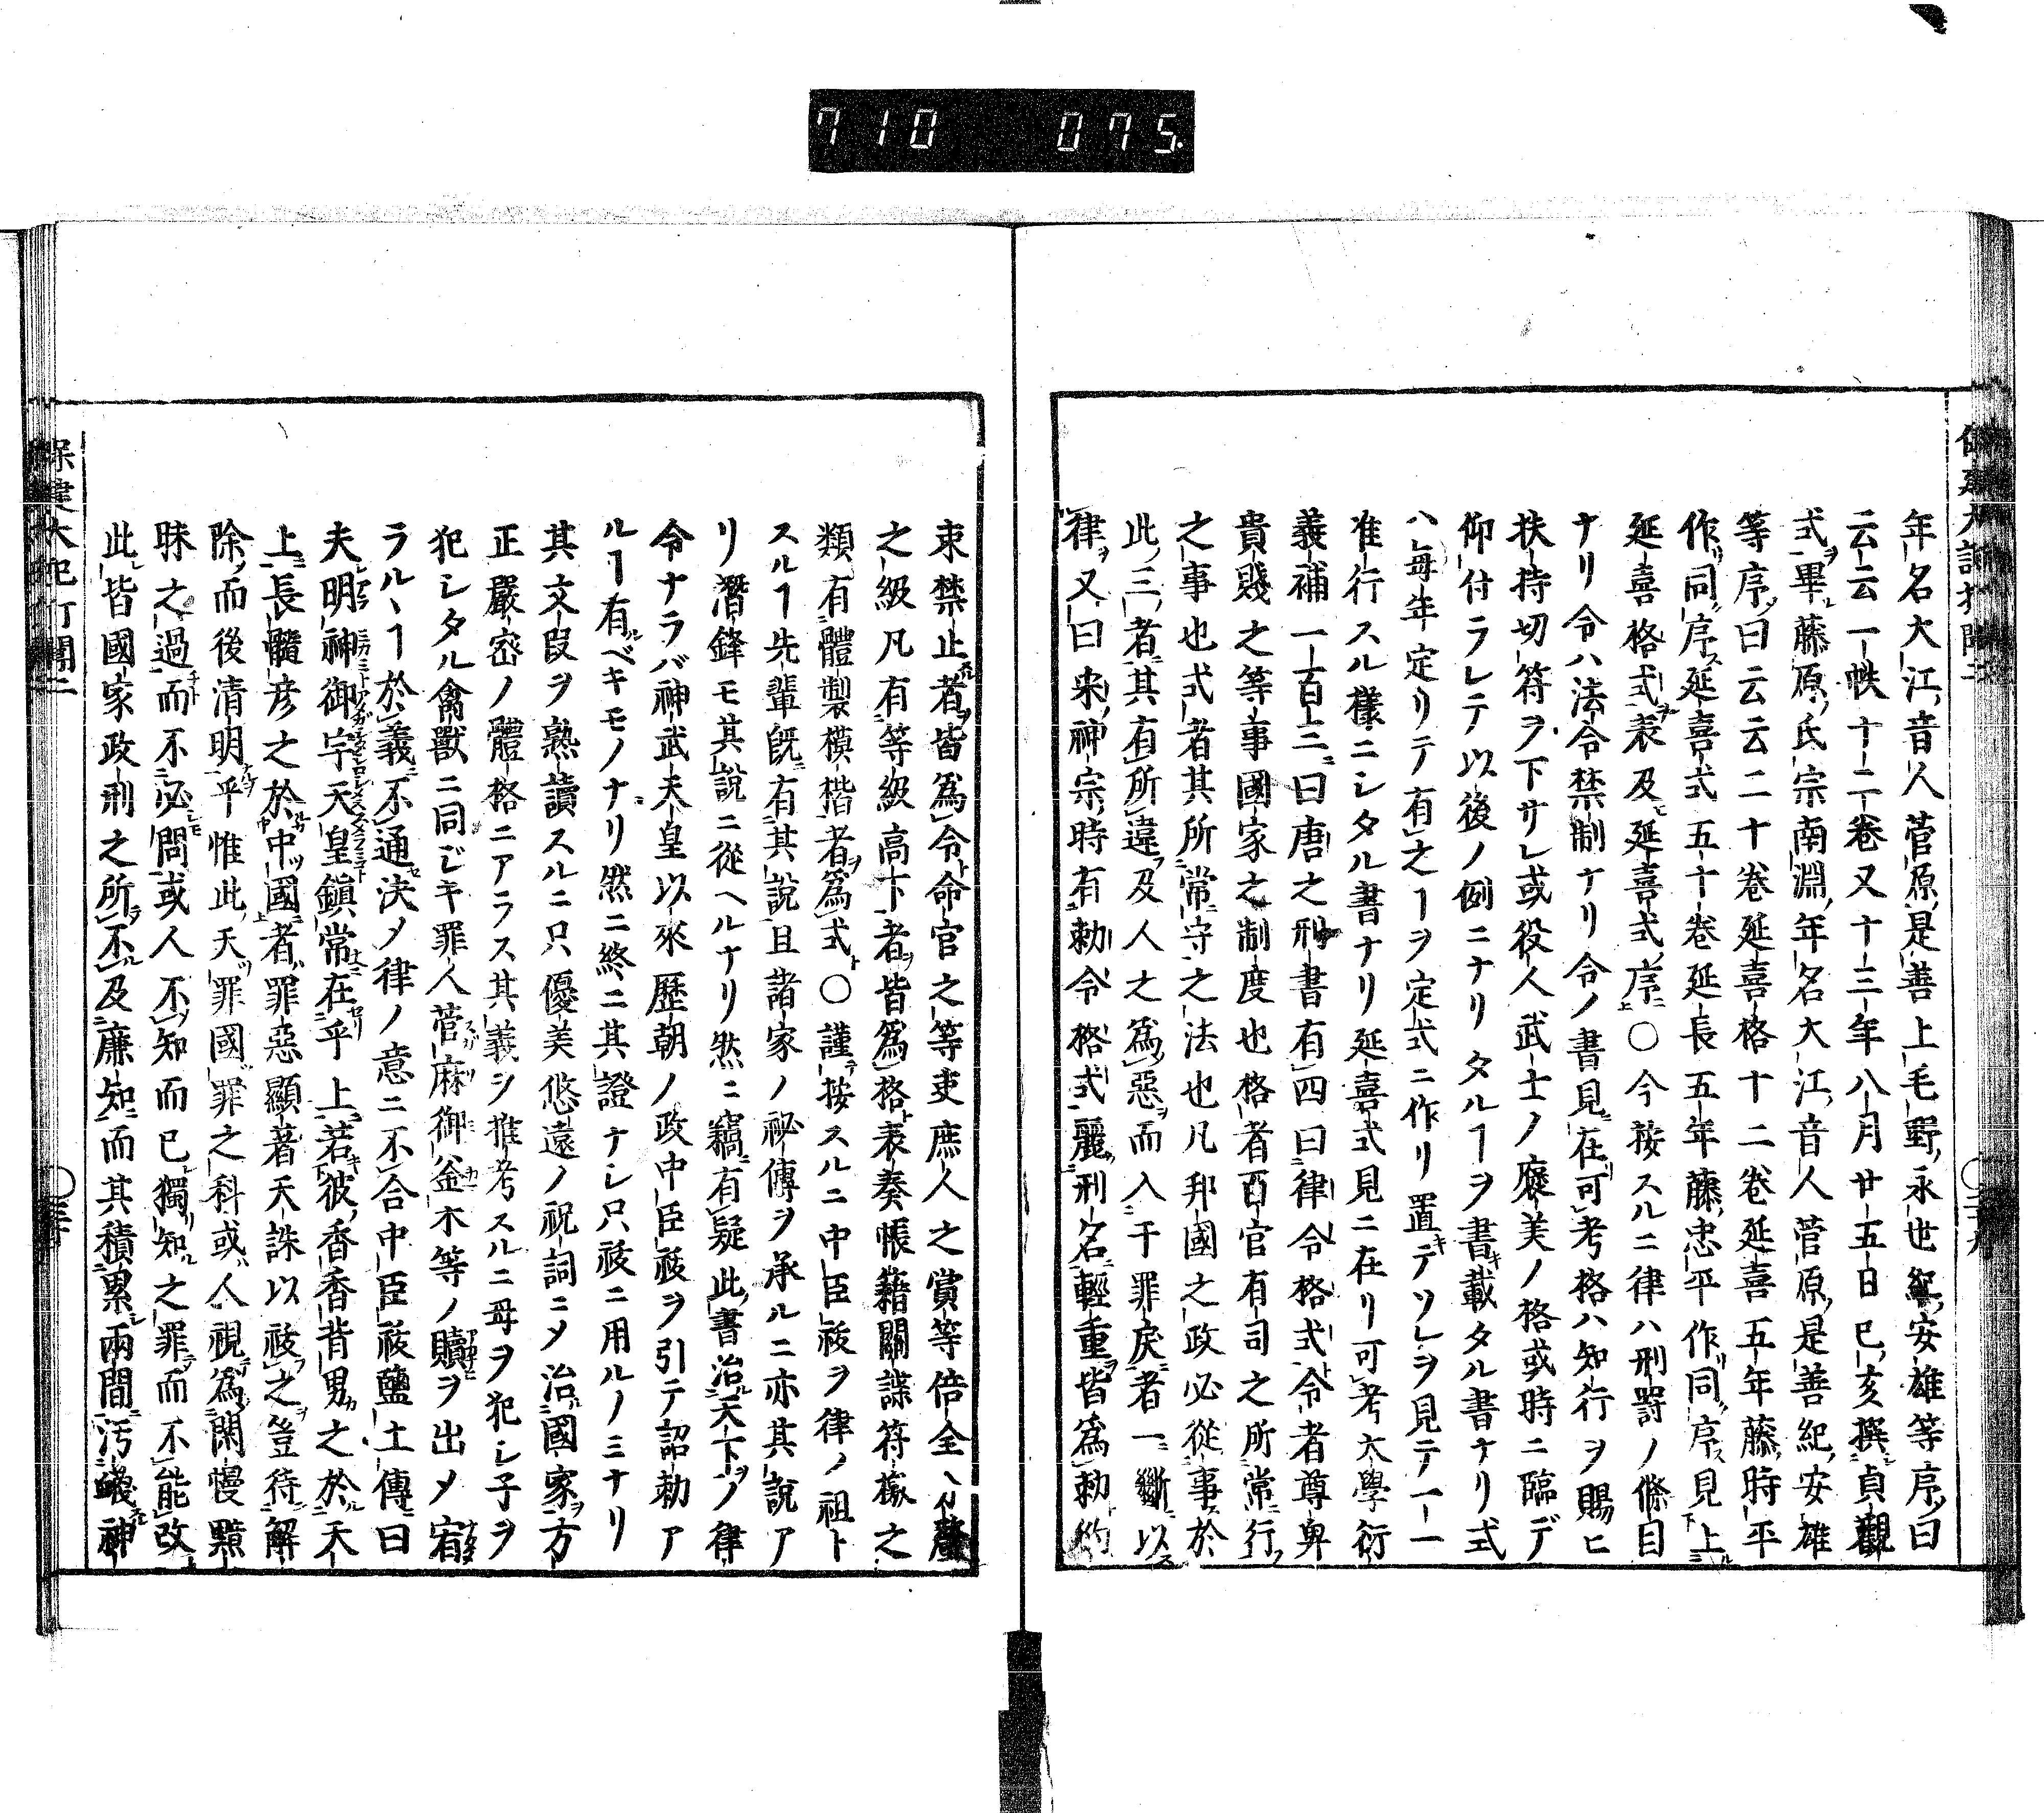 710 075
年名大江音人菅原是善上毛野永世紀安雄等序曰
云云一帙十二卷又十三年八月廿五日已亥撰貞觀
式畢藤原氏宗南淵年名大江音人菅原是善紀安雄
等序曰云云二十卷延喜格十二卷延喜五年藤時平
作同序延喜式五十卷延長五年藤忠平作同序見上
延喜格式表及延喜式序○今按スルニ律ハ刑罸ノ條目
ナリ令ハ法令禁制ナリ令ノ書見在可考格ハ知行ヲ賜ヒ
扶持切符ヲ下サレ或役人武士ノ褒美ノ格或時ニ臨デ
仰付ラレテ以後ノ例ニナリタルヿヲ書載タル書ナリ式
ハ毎年定リテ有之ヿヲ定式ニ作リ置テソレヲ見テ一一
准行スル樣ニシタル書ナリ延喜式見ニ在リ可考大學衍
義補一百二曰唐之刑書有四曰律令格式令者尊卑
貴賤之等事國家之制度也格者百官有司之所常行
之事也式者其所常守之法也凡邦國之政必從事於
此三者其有所違及人之爲惡而入于罪戻者一斷以
律又曰宋神宗時有勅令格式麗刑名輕重皆爲勅約
束禁止者皆爲令命官之等吏庶人之賞等倍全分釐
之級凡有等級高下者皆爲格表奏帳籍關諜符檄之
類有體製模楷者爲式○謹按スルニ中臣祓ヲ律ノ祖ト
スルヿ先輩既有其說且諸家ノ祕傳ヲ承ルニ亦其說ア
リ潛鋒モ其說ニ從ヘルナリ然ニ竊有疑此書治天下ノ律
令ナラバ神武天皇以來歷朝ノ政中臣祓ヲ引テ詔勅ア
ルヿ有ベキモノナリ然ニ終ニ其證ナシ只祓ニ用ルノミナリ
其文段ヲ熟讀スルニ只優美悠遠ノ祝詞ニメ治國家方
正嚴密ノ體格ニアラス其義ヲ推考スルニ母ヲ犯レ子ヲ
犯レタル禽獸ニ同じキ罪人菅麻御金木等ノ贖ヲ出メ宥
ラルヽヿ於義不通決メ律ノ意ニ不合中臣祓鹽土傳曰
夫明神御宇天皇鎭常在乎上若彼香香背男之於天
上長髓彦之於中國者罪惡顯著天誅以祓之豈待解
除而後清明乎惟此天罪國罪之科或人視爲閑慢黯
昧之過而不必問或人不知而已獨知之罪而不能改
此皆國家政刑之所不及廉知而其積累兩間汚穢神